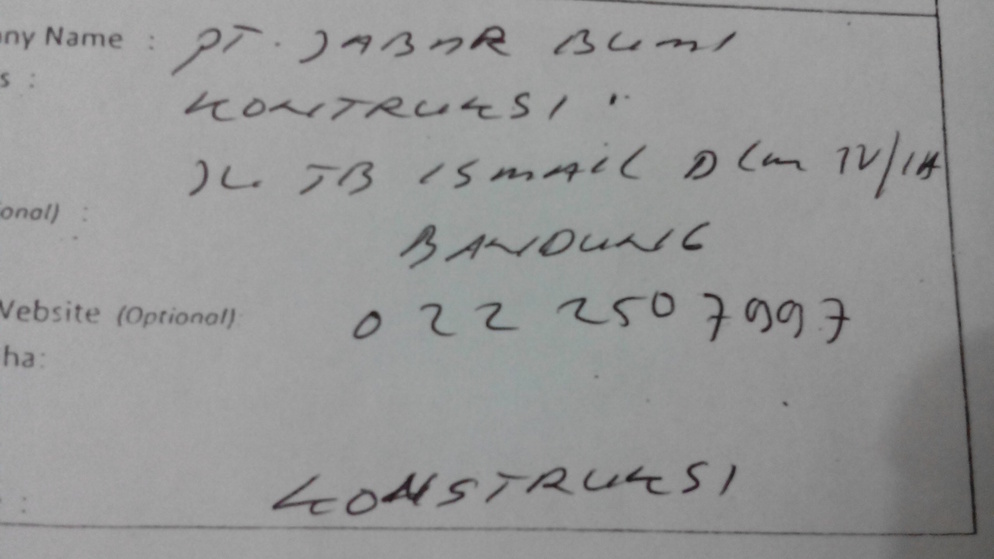 any Name : PT. JABAR BUMI
s :
KONTRUKSI
JL TB ISMAIL DLM IV/1A
onal) :
BANDUNG
Website (Optional)
022 2507997
ha:
:
KONSTRUKSI